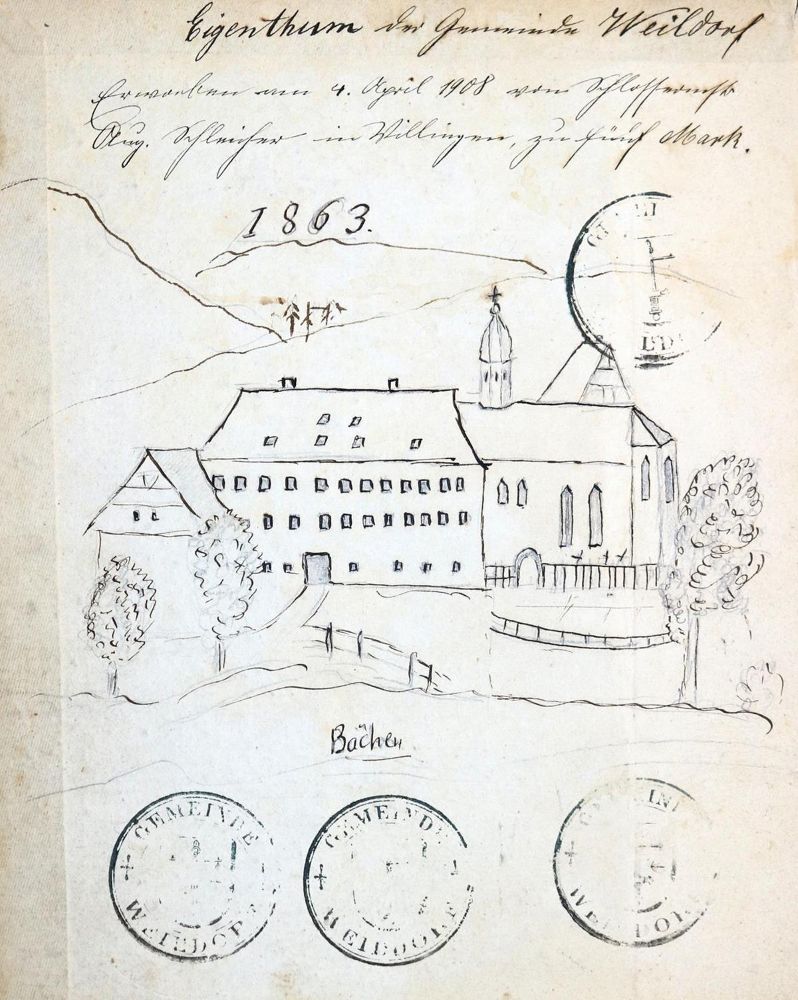 Eigenthum der Gemeinde Weildorf
Erworben am 4. April 1908 von Schlossermstr
Aug. Schleicher in Villingen, zu fünf Mark.
1863.
GEMEI
LDO
Bächen
GEMEINDE
WEILDORF
GEMEINDE
WEILDORF
GEMEIND
WEILDORF